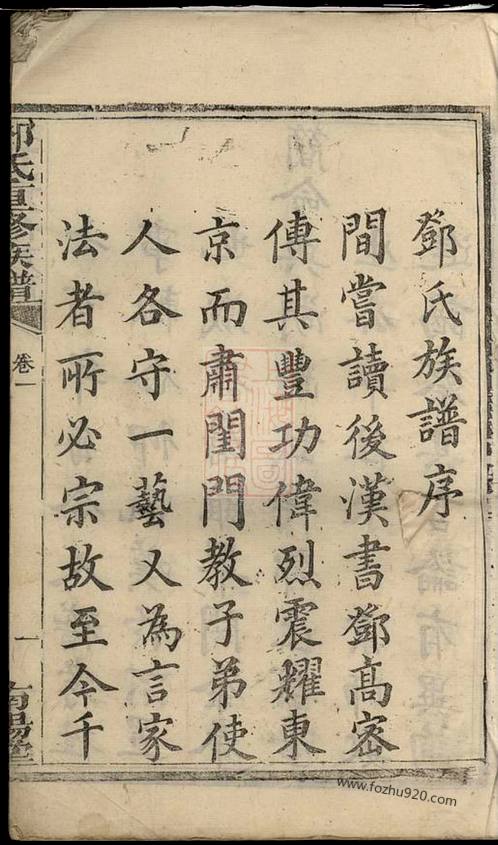 鄧氏族譜序
間嘗讀後漢書鄧高密
傳其豐功偉烈震耀東
京而肅閨門教子弟使
人各守一藝又為言家
法者所必宗故至今千
鄧氏重修族譜
卷一
一
南陽堂
www.fozhu920.com